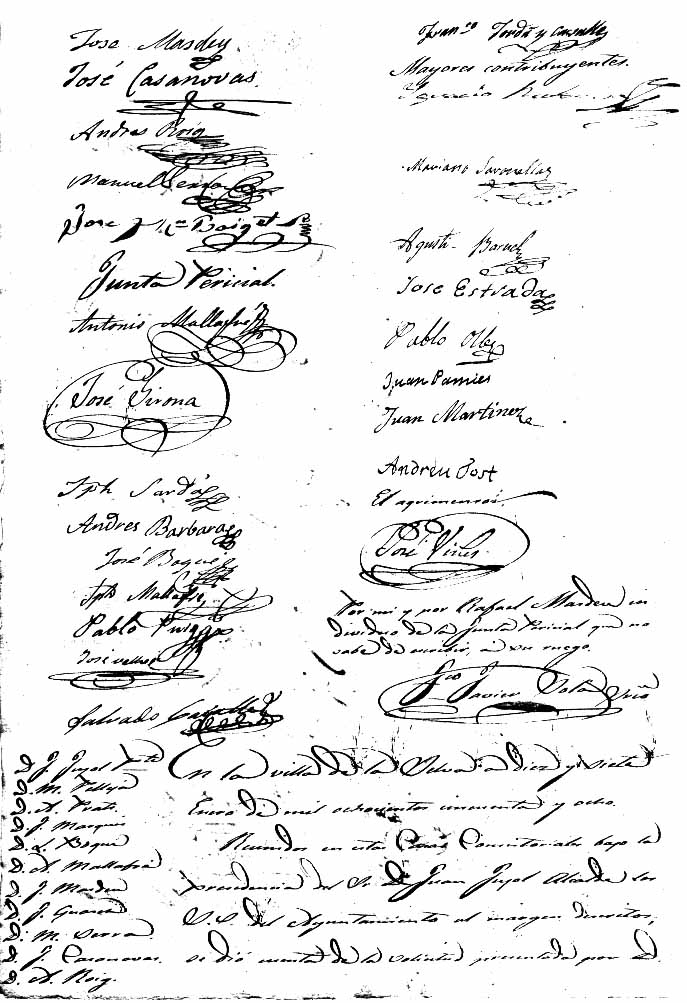 Jose Masdeu
José Casanovas.
Andres Roig
Manuel Serra
Jose Ma Boiget
Junta Pericial.
Antonio Mallafré
José Girona
Jph Sardá
Andres Barbara
José Bogué
Jph Mallafré
Pablo Puig
José
Salvado Cavallé
Franco Jordi y Cavallé
Mayores contribuyentes.
Ygnacio
Mariano
Agustí Baruch
Jose Estrada
Pablo Olle
Juan Pamies
Juan Martinez
Andreu Tost
El agrimensor.
José Viñes.
Por mi y por Rafael Masdeu in
dividuo de la Junta Pericial que no
sabe de escribir, á su ruego.
Fco Javier Solá Srio
D. J. Juyol Pte
D. M.
D. A. Prats.
D. J. Marques
D. L. Bogue
D. A. Mallafré
D. J. Masdeu
D. J.
D. M. Serra
D. J. Casanovas.
D. A. Roig.
En la villa de la Selva a diez y siete
Enero de mil ochocientos cincuenta y ocho.
Reunidos en estas Casas Consistoriales bajo la
presidencia del Sr. D. Juan Juyol Alcalde los
S.S. del Ayuntamiento al margen descritos,
se dió cuenta de la solicitud presentada por D.